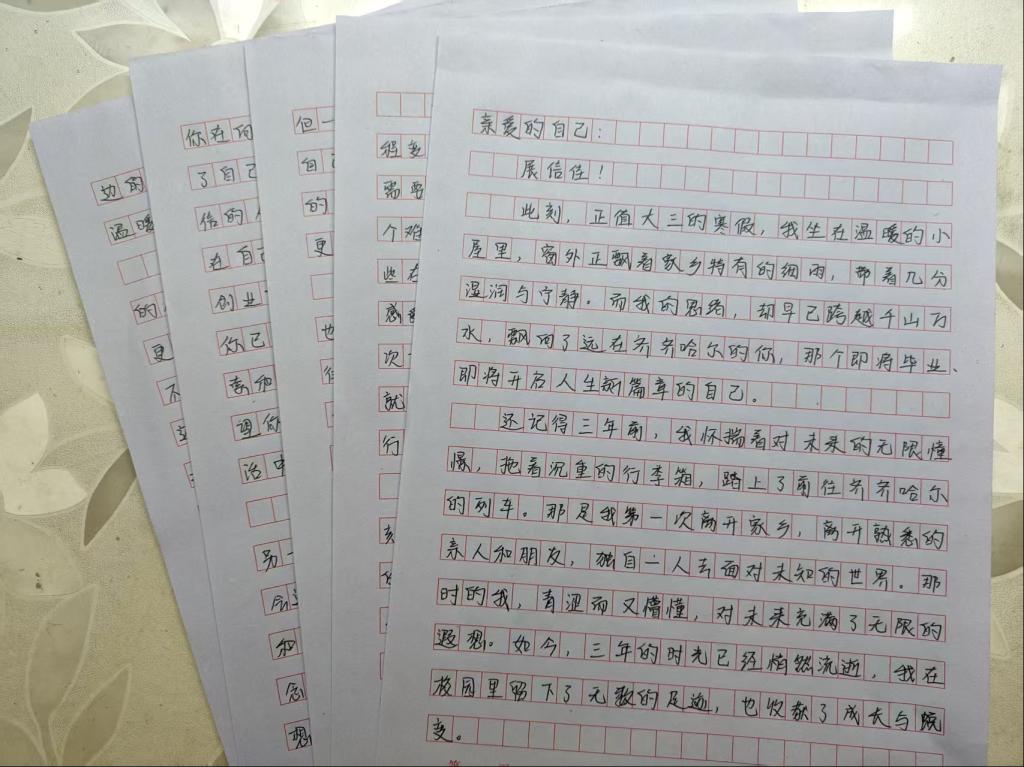 亲爱的自己：
展信佳！
此刻，正值大三的寒假，我坐在温暖的小
屋里，窗外正飘着家乡特有的细雨，带着几分
湿润与宁静。而我的思绪，却早已跨越千山万
水，飘回了远在齐齐哈尔的你，那个即将毕业、
即将开启人生新篇章的自己。
还记得三年前，我怀揣着对未来的无限憧
憬，拖着沉重的行李箱，踏上了前往齐齐哈尔
的列车。那是我第一次离开家乡，离开熟悉的
亲人和朋友，独自一人去面对未知的世界。那
时的我，青涩而又懵懂，对未来充满了无限的
遐想。如今，三年的时光已经悄然流逝，我在
校园里留下了无数的足迹，也收获了成长与蜕
变。
程多
需要
个难
些在
感
次
就
行
但一
自己
的
更
也
你在
了自己
信的
在自己
创业
你已
理你
活中
另一
和
念
想
边的
温暖
的
更
不